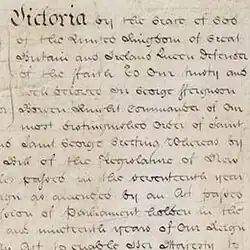 Victoria by the Grace of God
of the United Kingdom of Great
Britain and Ireland Queen Defender
of the Faith To Our trusty and
well beloved Sir George Ferguson
Bowen Knight Commander of Our
most distinguished Order of Saint
and Saint George Greeting Whereas by
Bill of the Legislature of New
passed in the seventeenth year
Reign as amended by an Act passed
Session of Parliament holden in the
and nineteenth years of Our Reign
An Act to enable Her Majesty to